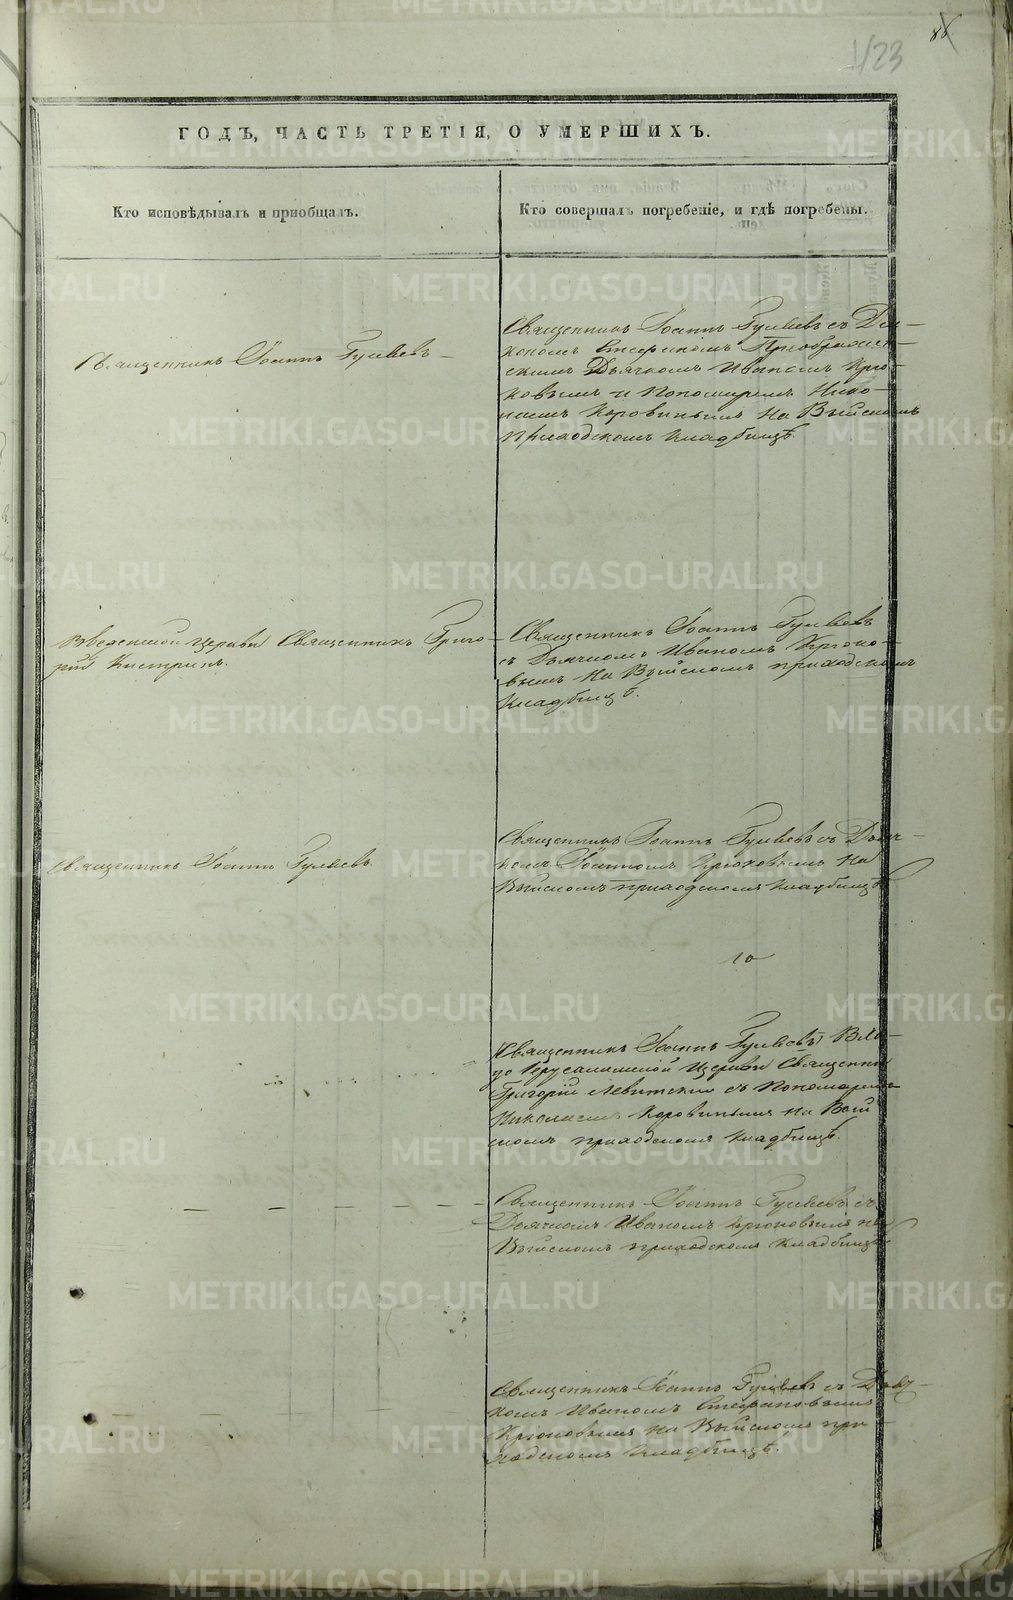 88
1/23
ГОДЪ, ЧАСТЬ ТРЕТІЯ, О УМЕРШИХЪ.
Кто исповѣдывалъ и приобщалъ.
Кто совершалъ погребеніе, и гдѣ погребены.
Священникъ Іоаннъ Гуляевъ
Священникъ Іоаннъ Гуляевъ съ Діа-
кономъ Стефаномъ Преображен-
скимъ Дьячкомъ Иваномъ Крю-
ковымъ и Пономаремъ Нико-
лаемъ Коровинымъ на Выйскомъ
приходскомъ кладбищѣ.
Введенской церкви Священникъ Григо-
рій
Священникъ Іоаннъ Гуляевъ
съ Дьячкомъ Иваномъ Крюко-
вымъ на Выйскомъ приходскомъ
кладбищѣ.
Священникъ Іоаннъ Гуляевъ
Священникъ Іоаннъ Гуляевъ съ Дьяч-
комъ Іоанномъ Крюковымъ на
Выйскомъ приходскомъ кладбищѣ
10
Священникъ Іоаннъ Гуляевъ, Вхо-
до Іерусалимской церкви Священникъ
Григорій Левитскій съ Пономаремъ
Николаемъ Коровинымъ на Вый
скомъ приходскомъ кладбищѣ.
Священникъ Іоаннъ Гуляевъ съ
Дьячкомъ Иваномъ Крюковымъ на
Выйскомъ приходскомъ кладбищѣ
Священникъ Іоаннъ Гуляевъ съ Дьяч-
комъ Иваномъ Стефановымъ
Крюковымъ на Выйскомъ при-
ходскомъ кладбищѣ.
METRIKI.GASO-URAL.RU